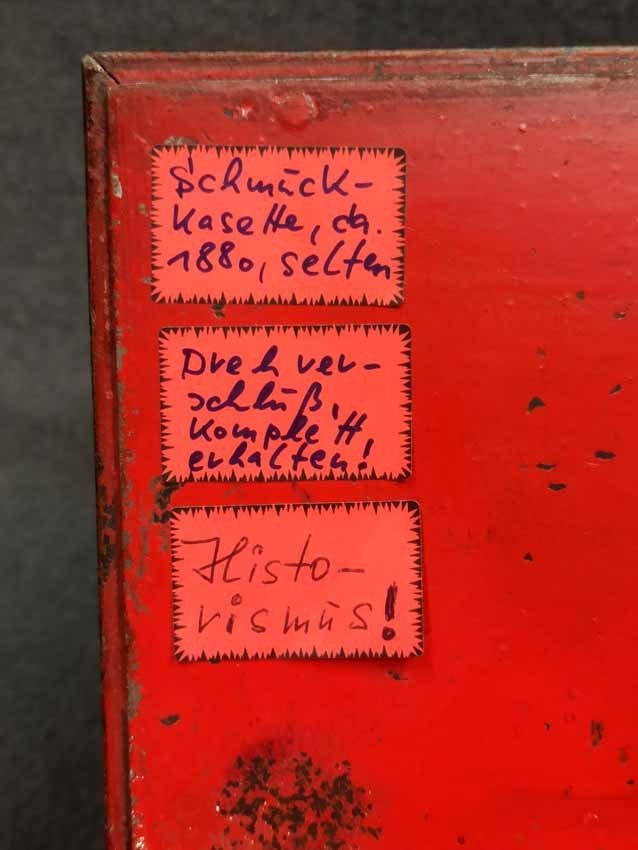 Schmuck-
kasette, ca.
1880, selten
Drehver-
schluß,
komplett
erhalten!
Histo-
rismus!